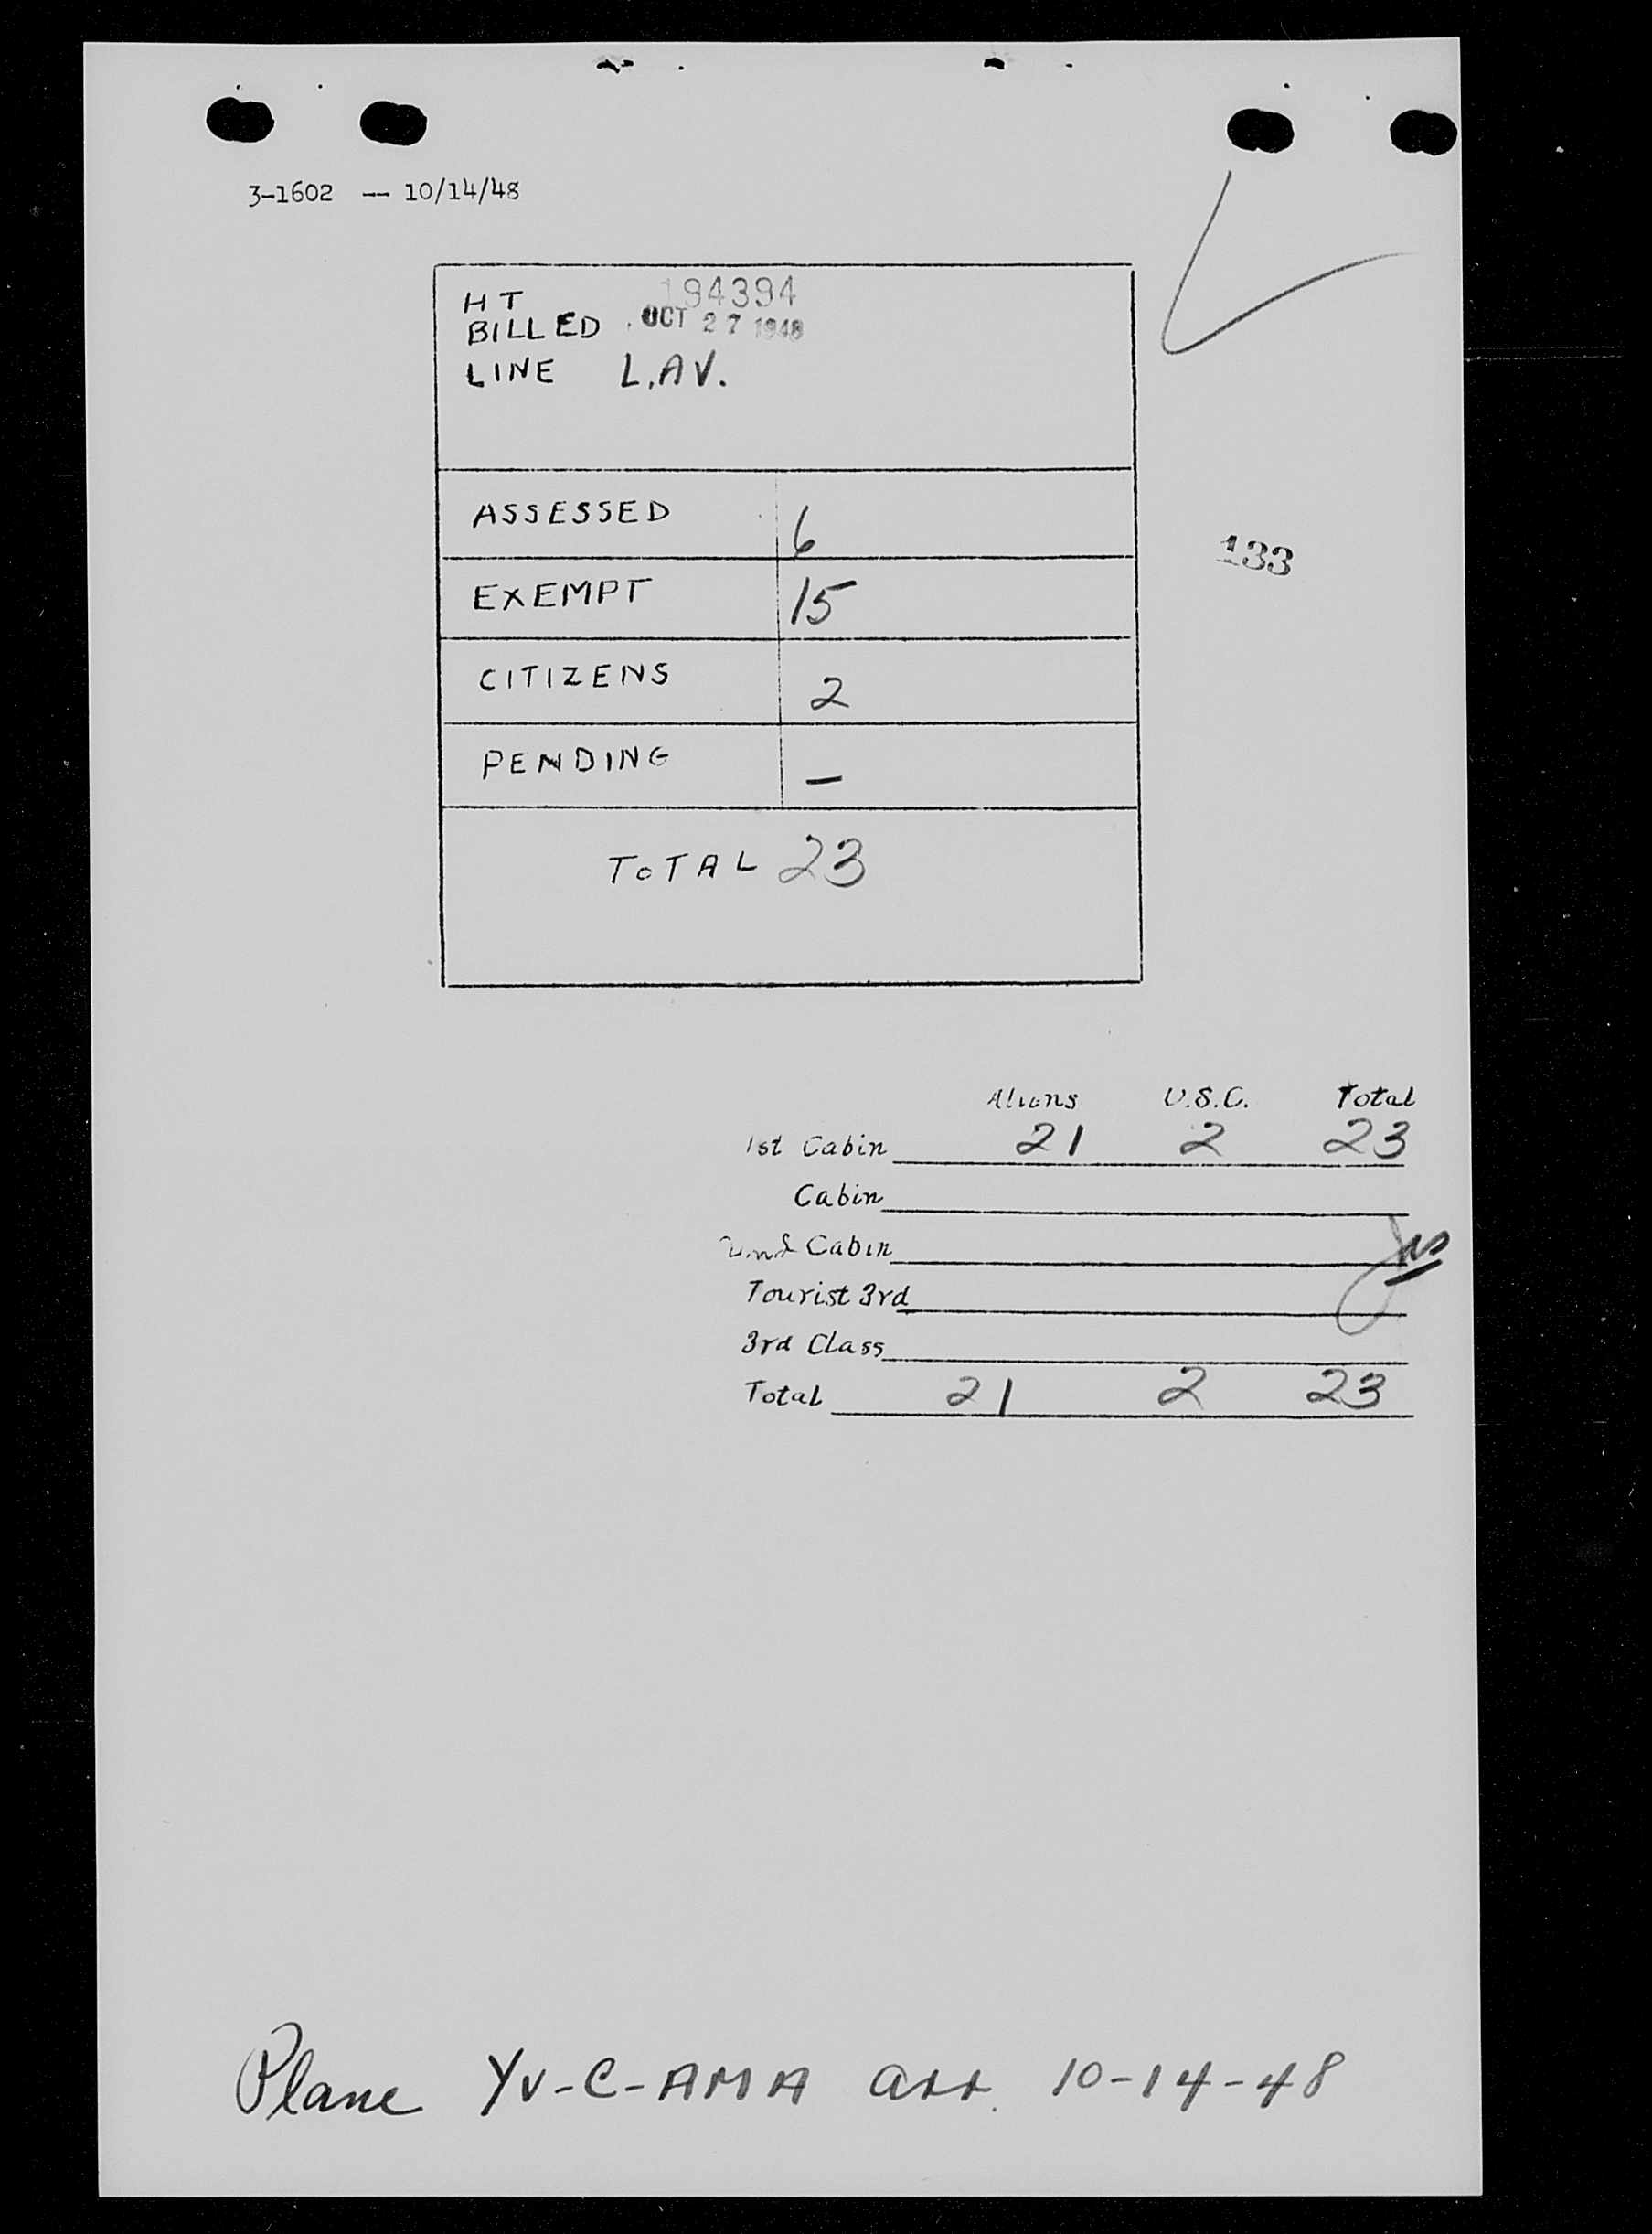 3-1602 -- 10/14/48
HT 194394
BILLED OCT 27 1948
LINE L.AV.
ASSESSED 6
133
EXEMPT 15
CITIZENS 2
PENDING —
TOTAL 23
Aliens U.S.C. Total
1st Cabin 21 2 23
Cabin
2nd Cabin
Tourist 3rd
3rd Class
Total 21 2 23
Plane YV-C-AMA arr. 10-14-48